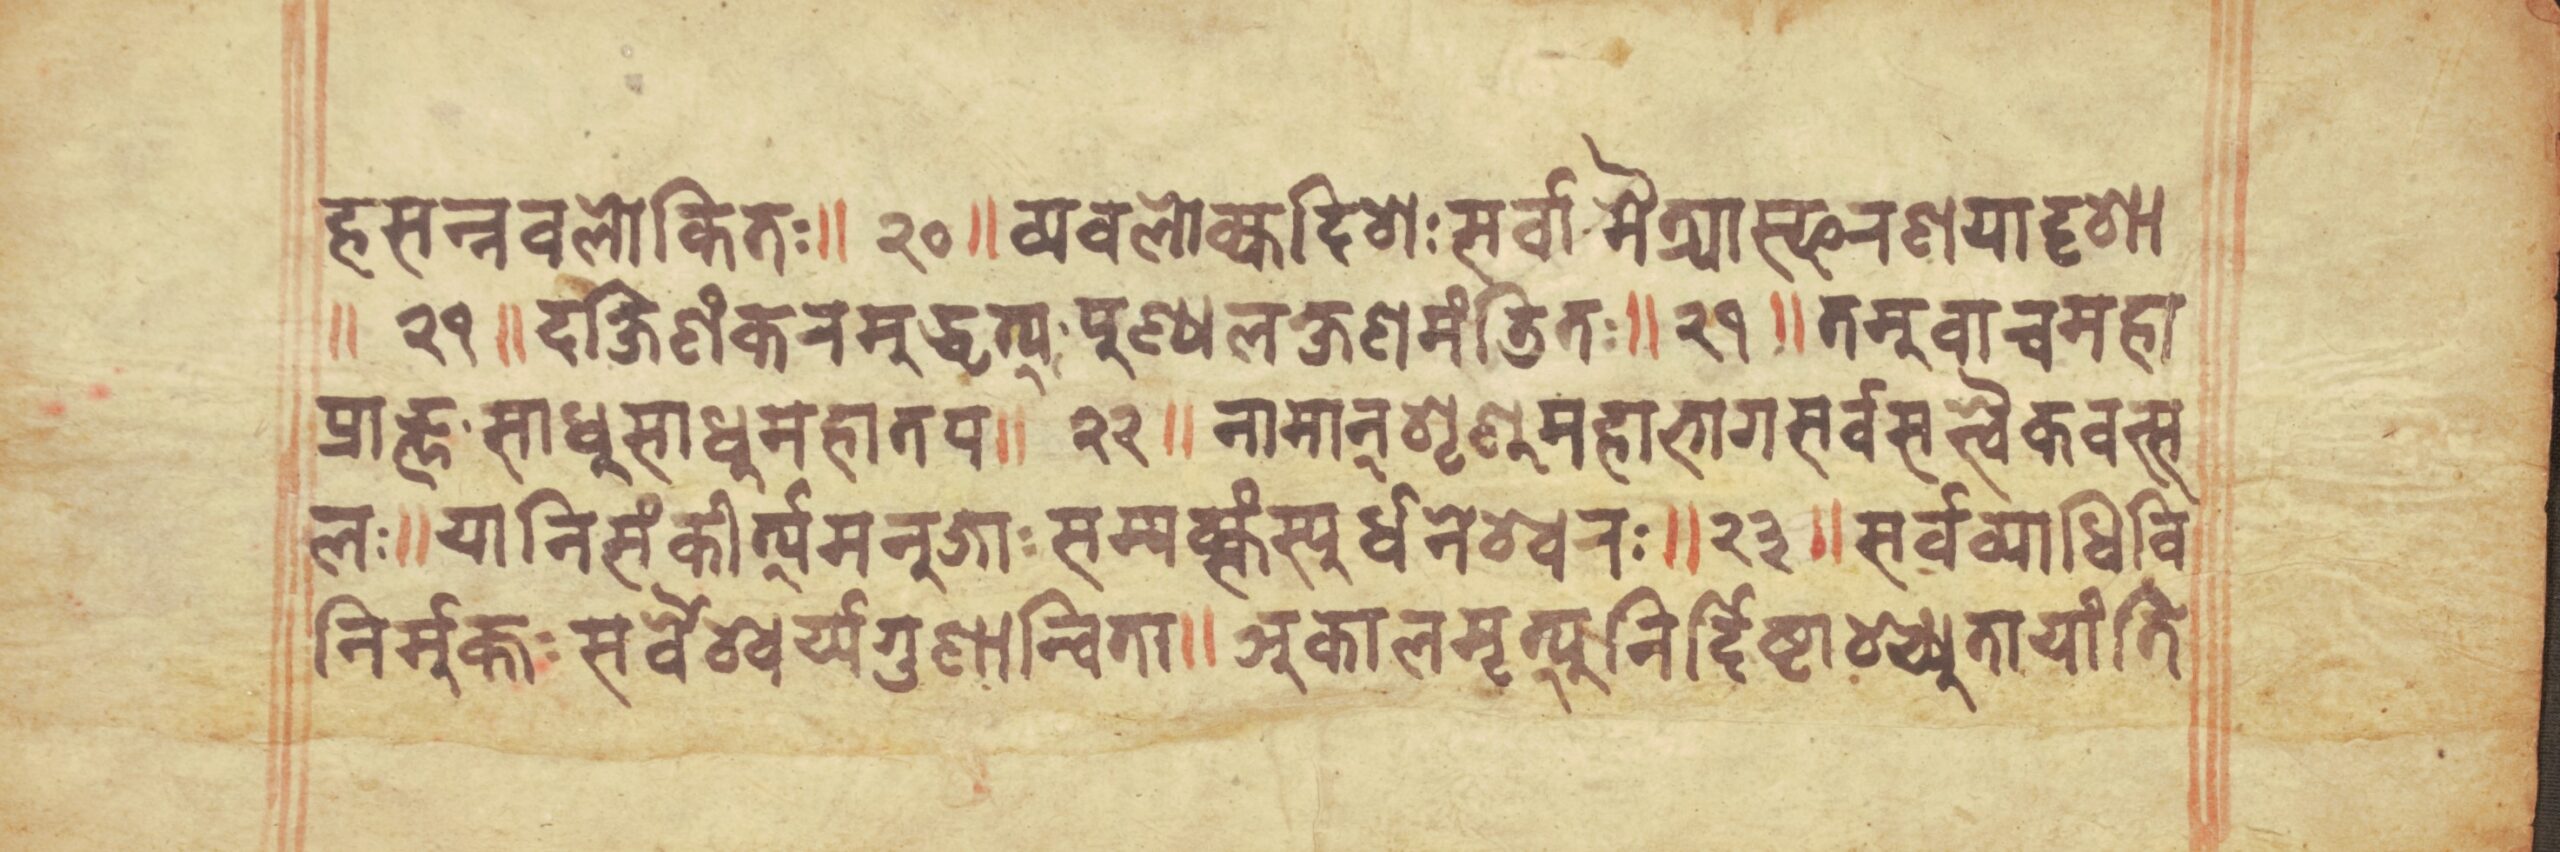 हसन्नवलोकितः॥ २० ॥व्यवलोक्यदिशः सर्वा मैत्र्यास्फरणयादृशा
॥ २१ ॥दक्षिणंकरमुद्धृत्य पुण्यलक्षणमंडितः॥२१॥तमुवाचमहा
प्राज्ञः साधुसाधुमहातप॥ २२ ॥ नामान्शृणुमहाभागसर्वसत्त्वैकवत्स
लः॥यानिसंकीर्त्यमनुजाः सम्यक्संस्युर्धनेश्वरः॥२३॥सर्वव्याधिवि
निर्मुक्तः सर्वैश्वर्य्यगुणान्विता॥अकालमृत्युनिर्द्दिष्टाश्च्युतायांति